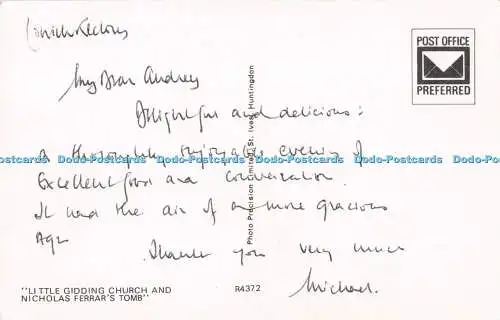 Rectory
My Dear Audrey
Delightful and delicious:
a thoroughly enjoyable evening of
Excellent food and conversation.
It had the air of a more gracious
Age
Thank you very much
Michael.
POST OFFICE
PREFERRED
Photo Precision Limited, St. Ives, Huntingdon
Dodo-Postcards Dodo-Postcards Dodo-Postcards Dodo-Postcards Dodo-Postcards Dodo-Postcards
"LITTLE GIDDING CHURCH AND
NICHOLAS FERRAR'S TOMB"
R4372